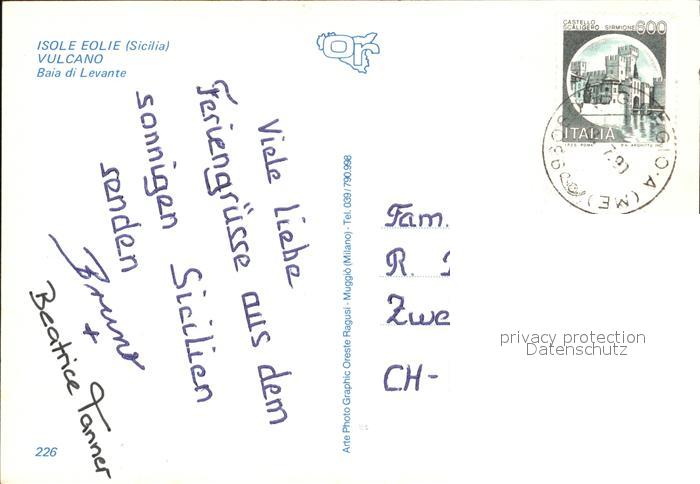 ISOLE EOLIE (Sicilia)
VULCANO
Baia di Levante
Viele liebe
Feriengrüsse aus dem
sonnigen Sicilien
senden
Bruno
+
Beatrice Tanner
226
Arte Photo Graphic Oreste Ragusi - Muggiò (Milano) - Tel. 039/790.998
CASTELLO
SCALIGERO SIRMIONE
600
ITALIA
(ME)
Fam.
R.
Zwe
CH-
privacy protection
Datenschutz